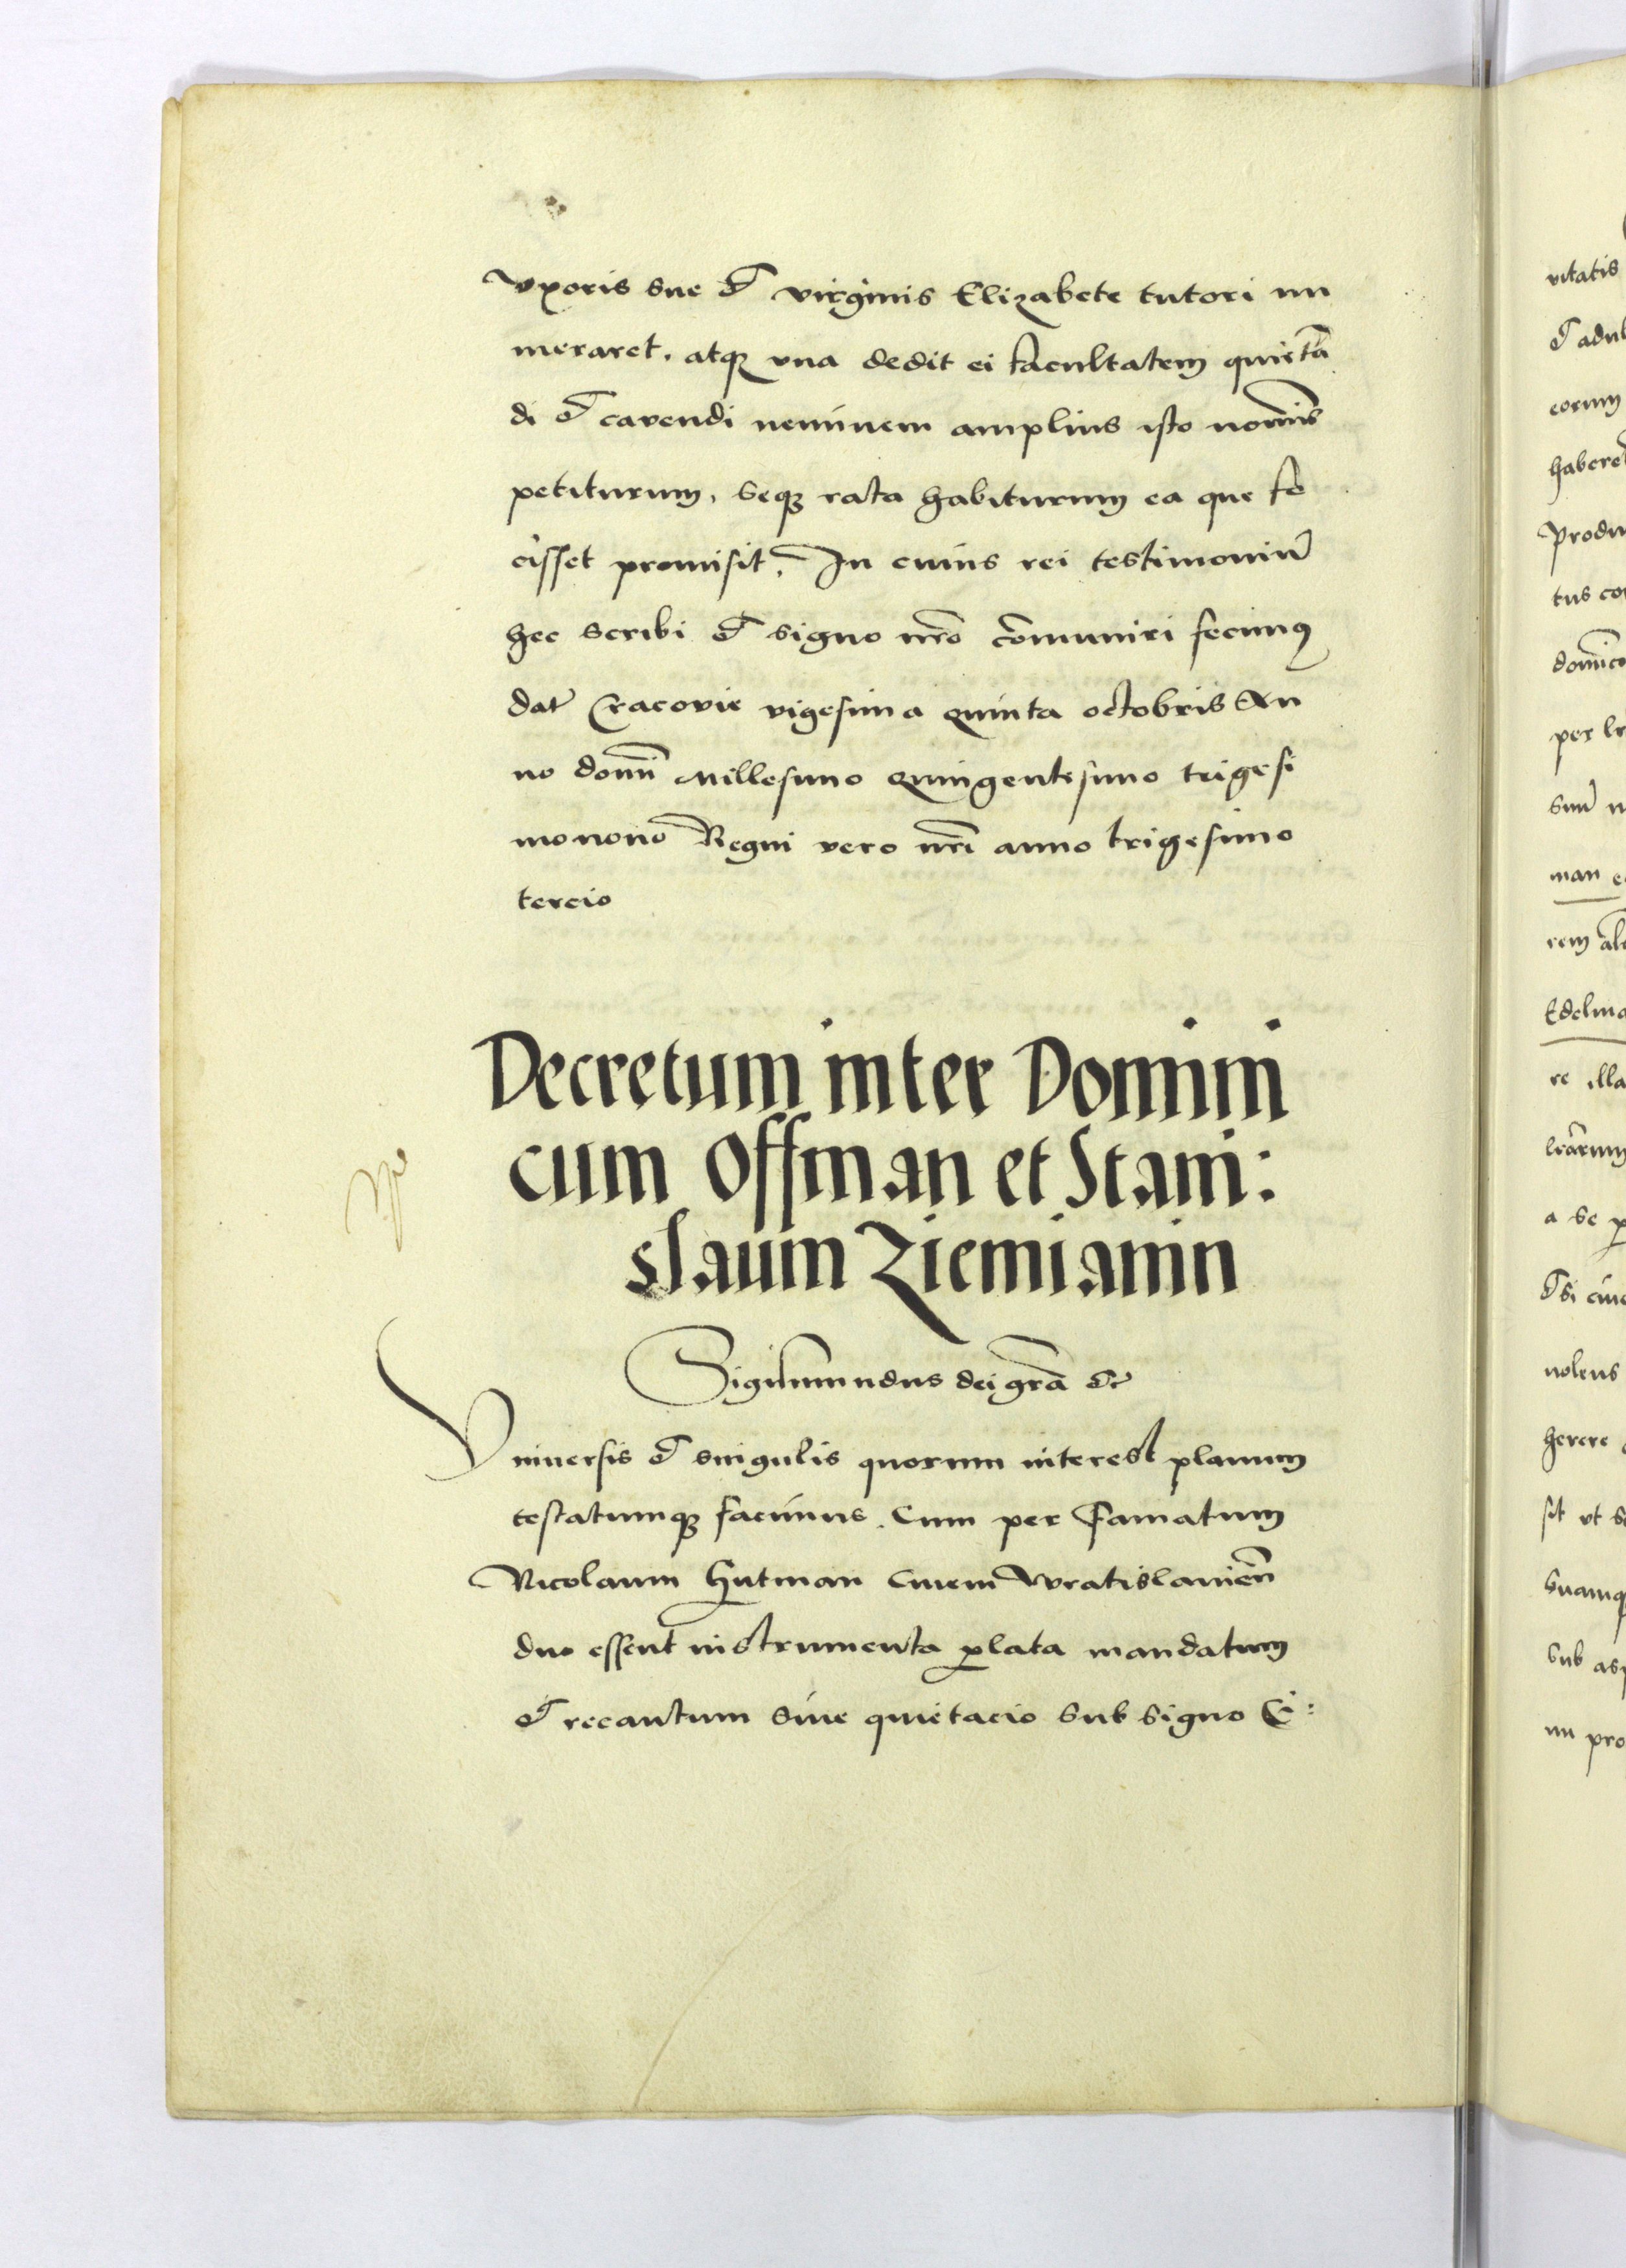 uxoris sue et virginis Elizabete tutori nu
meraret, atq₃ una dedit ei facultatem quietā
di et cavendi neminem amplius isto nomīs
petiturum, seq₃ rata habiturum ea que fe
cisset promisit, In cuius rei testimoniū
hec scribi et signo nr̄o cōmuniri fecimꝰ
dat̄ Cracovie vigesima quinta octobris An
no domī Millesimo quingentesimo trigesi
mo nono Regni vero nr̄i anno trigesimo
tercio
Decretum inter Domini
cum Offman et Stani:
slaum Ziemianin
Sigismundus dei gr̄a etc
Universis et singulis quorum interest planum
testatumq₃ facimus. Cum per Famatum
Nicolaum Hutman Civem Wratislavien̄
duo essent instrumenta ꝓlata mandatum
et recautum sive quietacio sub signo Ci:
vitatis
et adul
eorum
habere
produ
tus co
domīco
per lr
suū n
man e
rem al
Edelma
re illa
lr̄arum
a se p
et si cive
nolens
herere
sit ut s
suamq
sub asp
nu pro